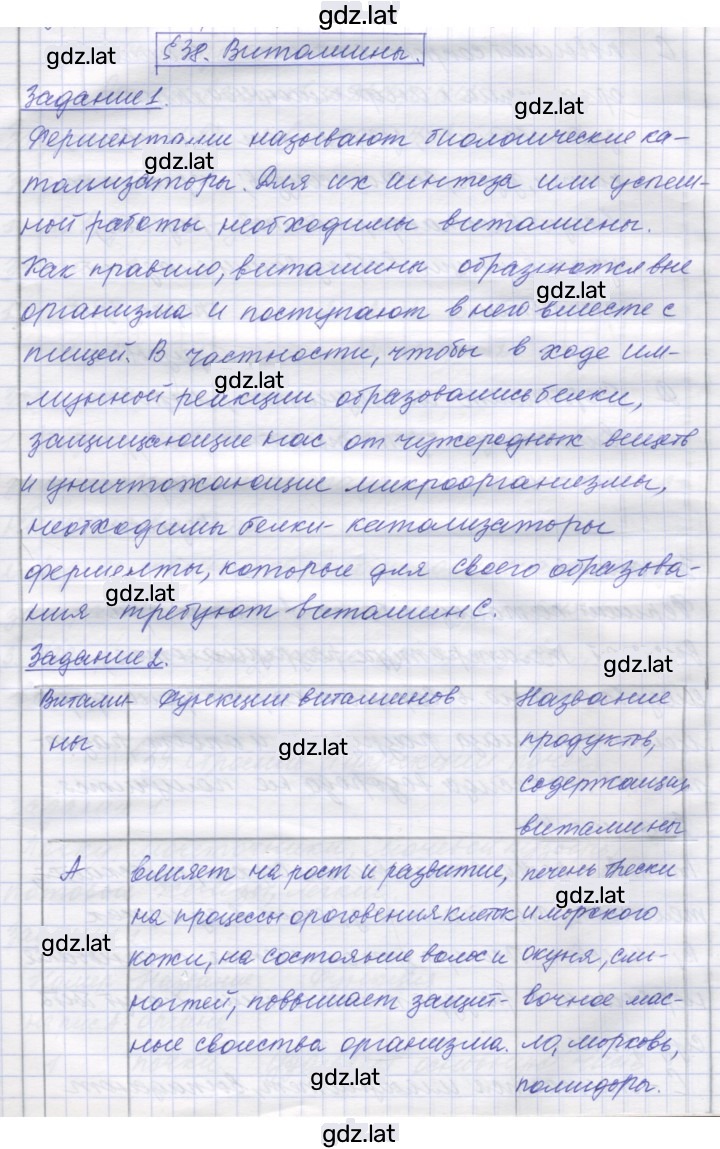 gdz.lat
gdz.lat
§ 38. Витамины.
Задание 1.
gdz.lat
Ферментами называют биологические ка-
gdz.lat
тализаторы. Для их синтеза или успеш-
ной работы необходимы витамины.
Как правило, витамины образуются вне
gdz.lat
организма и поступают в него вместе с
пищей. В частности, чтобы в ходе им-
gdz.lat
мунной реакции образовались белки,
защищающие нас от чужеродных веществ
и уничтожающие микроорганизмы,
необходимы белки-катализаторы
ферменты, которые для своего образова-
gdz.lat
ния требуют витамин С.
Задание 2.
gdz.lat
Витами- Функции витаминов Название
ны продуктов,
gdz.lat
содержащих
витамины
А влияет на рост и развитие, печень трески
gdz.lat
на процессы ороговения клеток и морского
gdz.lat
кожи, на состояние волос и окуня, сли-
ногтей, повышает защит- вочное мас-
ные свойства организма. ло, морковь,
gdz.lat
помидоры.
gdz.lat